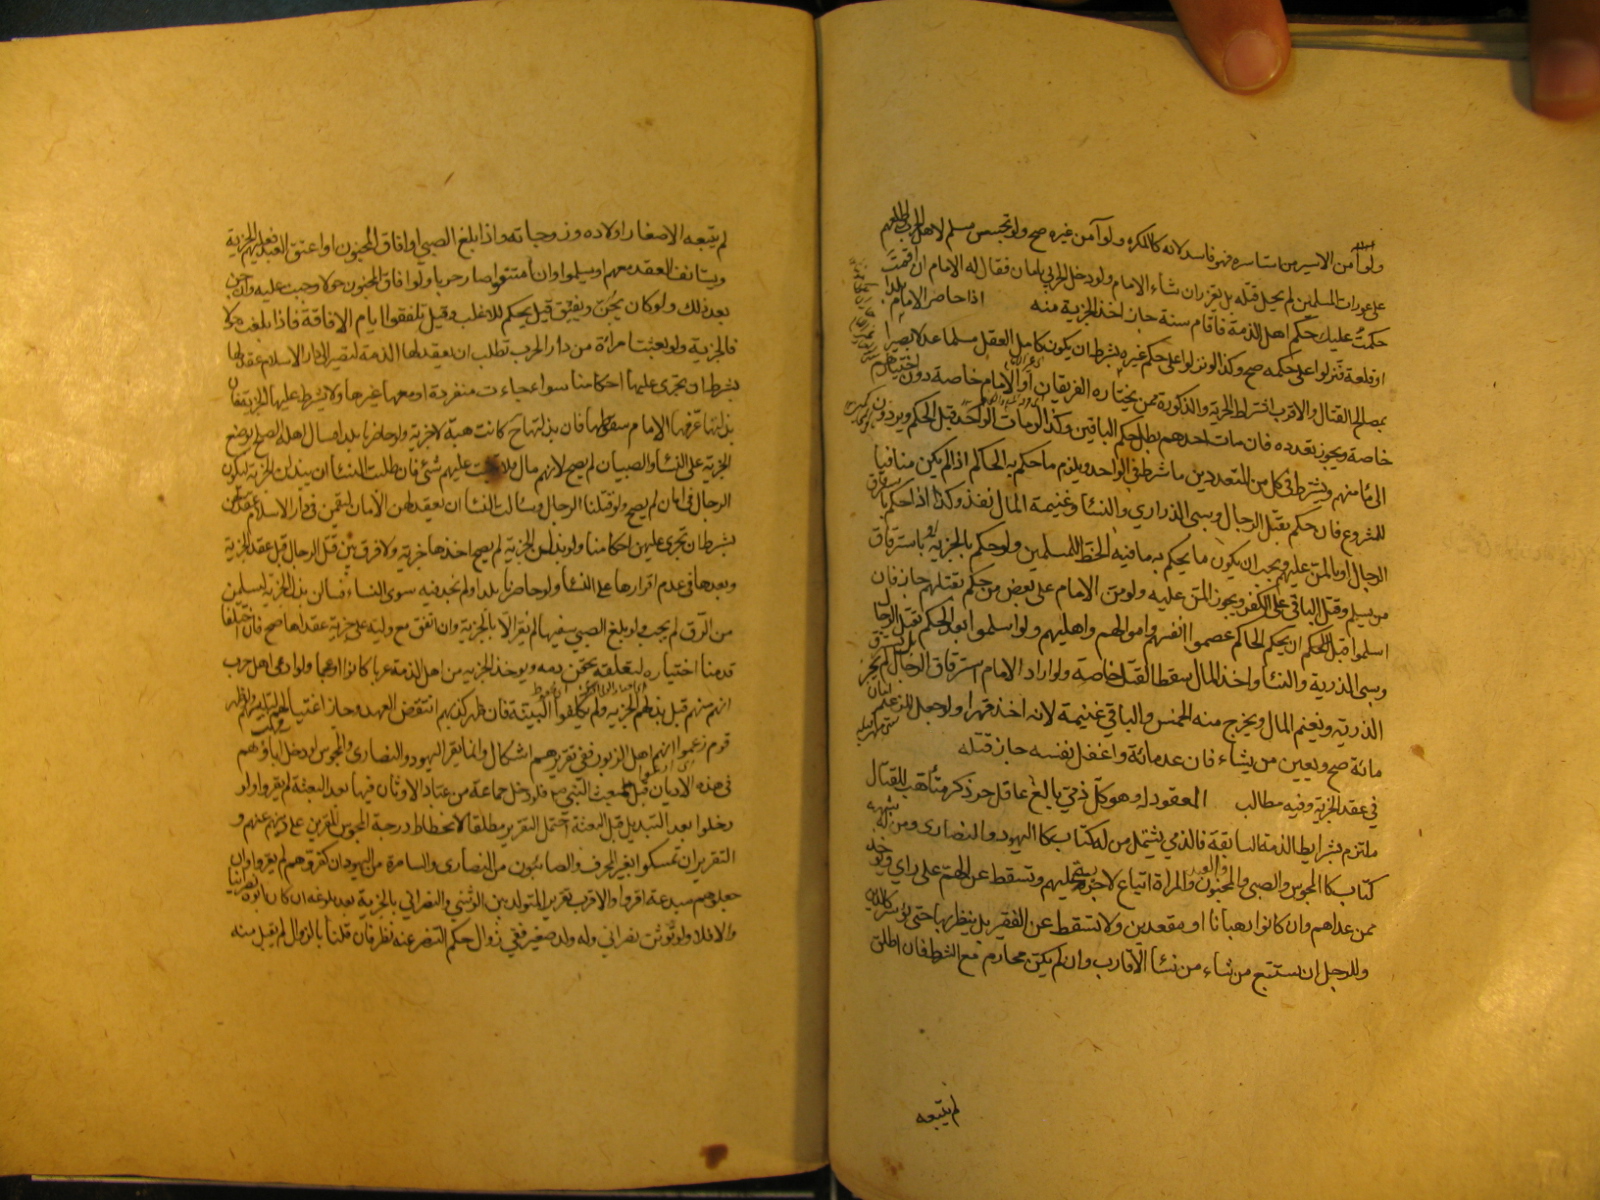 ولو آمن الاسير من استاسره فهو فاسد لانه كالمكره ولو آمن غيره صح ولو تجسس مسلم لاهل الحرب واطلعهم
على عورات المسلمين لم يحل قتله بل يعزر ان شاء الامام ولو دخل الحربي بامان فقال له الامام ان اقمت
حكمت عليك حكم اهل الذمة فاقام سنة جاز اخذ الجزية منه اذا حاصر الامام بلدا
او قلعة فنزلوا على حكمه صح وكذا لو نزلوا على حكم غيره بشرط ان يكون كامل العقل مسلما عدلا بصيرا
بمصالح القتال والاقرب اشتراط الحرية والذكورة ممن يختاره الفريقان او الامام خاصة دون اختيارهم
خاصة ويجوز تعدده فان مات احدهم بطل حكم الباقين وكذا لو مات الواحد قبل الحكم ويردون
الى مأمنهم ويشترط في كل من المتعددين ما شرط في الواحد ويلزم ما حكم به الحاكم اذا لم يكن منافيا
للمشروع فان حكم بقتل الرجال وسبى الذراري والنسا وغنيمة المال نفذ وكذا اذا حكم باسترقاق
الرجال او بالمن عليهم ويجب ان يكون ما يحكم به ما فيه الحظ للمسلمين ولو حكم بالجزية او باسترقاق
من يسلم وقتل الباقي على الكفر ويجوز المن عليه ولو من الامام على بعض من حكم بقتلهم جاز فان
اسلموا قبل الحكم ان يحكم الحاكم عصموا انفسهم واموالهم واهليهم ولو اسلموا بعد الحكم بقتل الرجال
وسبى الذرية والنسا واخذ المال سقط القتل خاصة ولو اراد الامام استرقاق الرجال لم يجز
الذرية ويغنم المال ويخرج منه الخمس والباقي غنيمة لانه اخذ قهرا ولو جعل للزعيم امان
مائة صح ويعين من يشاء فان عد مائة واغفل نفسه جاز قتله
في عقد الجزية وفيه مطالب المعقود له وهو كل ذمي بالغ عاقل حر ذكر متأهب للقتال
ملتزم بشرايط الذمة السابقة فالذمي يشتمل من له كتاب كاليهود والنصارى ومن له شبهة
كتاب كالمجوس والصبي والمجنون والعبد والمراة اتباع لا جزية عليهم وتسقط عن الهم على راي ويؤخذ
ممن عداهم وان كانوا رهبانا او مقعدين ولا تسقط عن الفقير بل ينظر بها حتى يوسر كالدين
وللرجل ان يستتبع من شاء من نسآ الاقارب وان لم يكن محارم مع الشرط فان اطلق
لم يتبعه
لم يتبعه الا صغار اولاده وزوجاته واذا بلغ الصبي او افاق المجنون او اعتق العبد فعليهم الجزية
ويستانف العقد معهم او يسلموا وان امتنعوا صار حربا ولو افاق المجنون حولا وجبت عليه وان جن
بعد ذلك ولو كان يجن ويفيق قيل يحكم للاغلب وقيل تلفق ايام الافاقة فاذا بلغت حولا
فالجزية ولو بعثت امرأة من دار الحرب تطلب ان نعقد لها الذمة لتصير الى دار الاسلام عقد لها
بشرط ان تجرى عليها احكامنا سواء جاءت منفردة او معها غيرها ولا يشترط عليها الجزية فان
بذلتها عرفها الامام سقوطها فان بذلتها ح كانت هبة لا جزية ولو حاضرنا بلدا فسال اهله الصلح بوضع
الجزية على النسآ والصبيان لم يصح لانهم مال فلا تثبت عليهم شئ فان طلبت النسآ ان يبذلن الجزية ليكون
الرجال في امان لم يصح ولو قتلنا الرجال وسالت النسا ان نعقد لهن الامان ليقمن في دار الاسلام عقد لهن
بشرط ان تجرى عليهن احكامنا ولو بذلن الجزية لم يصح اخذها جزية ولا فرق بين قتل الرجال قبل عقد الجزية
وبعدها في عدم اقرارها على النسآ ولو حاصرنا بلدا ولم نجد فيه سوى النساء فسالن بذل الجزية ليسلمن
من الرق لم يجب ولو بلغ الصبي سفيها لم يقر الا بالجزية وان اتفق مع وليه على جزية عقداها صح فان اختلفا
قدمنا اختياره لتعلقه بحقن دمه ويوخذ الجزيه من اهل الذمة عربا كانوا او عجما ولو ادعى اهل حرب
انهم منهم قبل بذلهم الجزيه ولم يكلفوا البينة فان ظهر كذبهم انتقض العهد وجاز اغتيالهم
قوم زعموا انهم اهل الزبور ففي تقريرهم اشكال وانما يقر اليهود والنصارى والمجوس لو دخل اباؤهم
في هذه الاديان قبل مبعث النبي فلو دخل جماعة من عباد الاوثان فيها بعد البعثة لم يقروا ولو
دخلوا بعد التبديل قبل البعثة احتمل التقرير مطلقا لانحطاط درجة المجوس المقرين على دينهم عنهم و
التقرير ان تمسكوا بغير المحرف والصابئون من النصارى والسامرة من اليهود ان كفروهم لم يقروا وان
جعلوهم مبدعة اقروا والاقرب تقرير المتولد بين الوثني والنصراني بالجزية بعد بلوغه ان كان ابوه نصرانيا
والا فلا ولو توثن نصراني وله ولد صغير ففي زوال حكم التنصر عنه نظر فان قلنا بالزوال لم يقبل منه